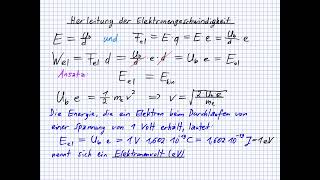 Herleitung der Elektronengeschwindigkeit
E = U_b/d und F_el = E · q = E · e = U_b/d · e
W_el = F_el · d = U_b/d · e · d = U_b e = E_el
Ansatz: E_el = E_kin
U_b e = 1/2 m_e v² ⇒ v = √(2 U_b e / m_e)
Die Energie, die ein Elektron beim Durchlaufen von
einer Spannung von 1 Volt erhält, lautet:
E_el = U_b e = 1 V · 1,602 · 10^-19 C = 1,602 · 10^-19 J = 1 eV
nennt sich ein Elektronenvolt (eV)